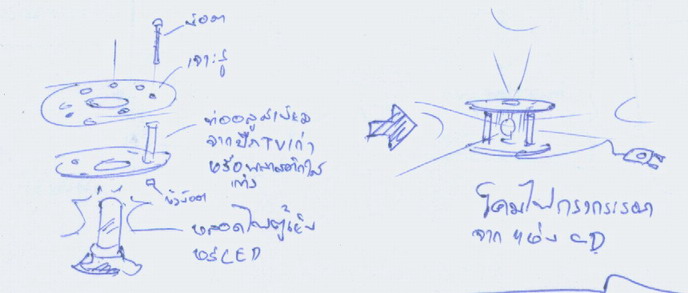 น๊อต
เจาะรู
ท่ออลูมิเนียม
จากปีกTVเก่า
หรือพลาสติกใส
แท่ง
หัวน๊อต
หลอดไฟตู้เย็น
หรือLED
โคมไฟ
จาก แผ่น CD